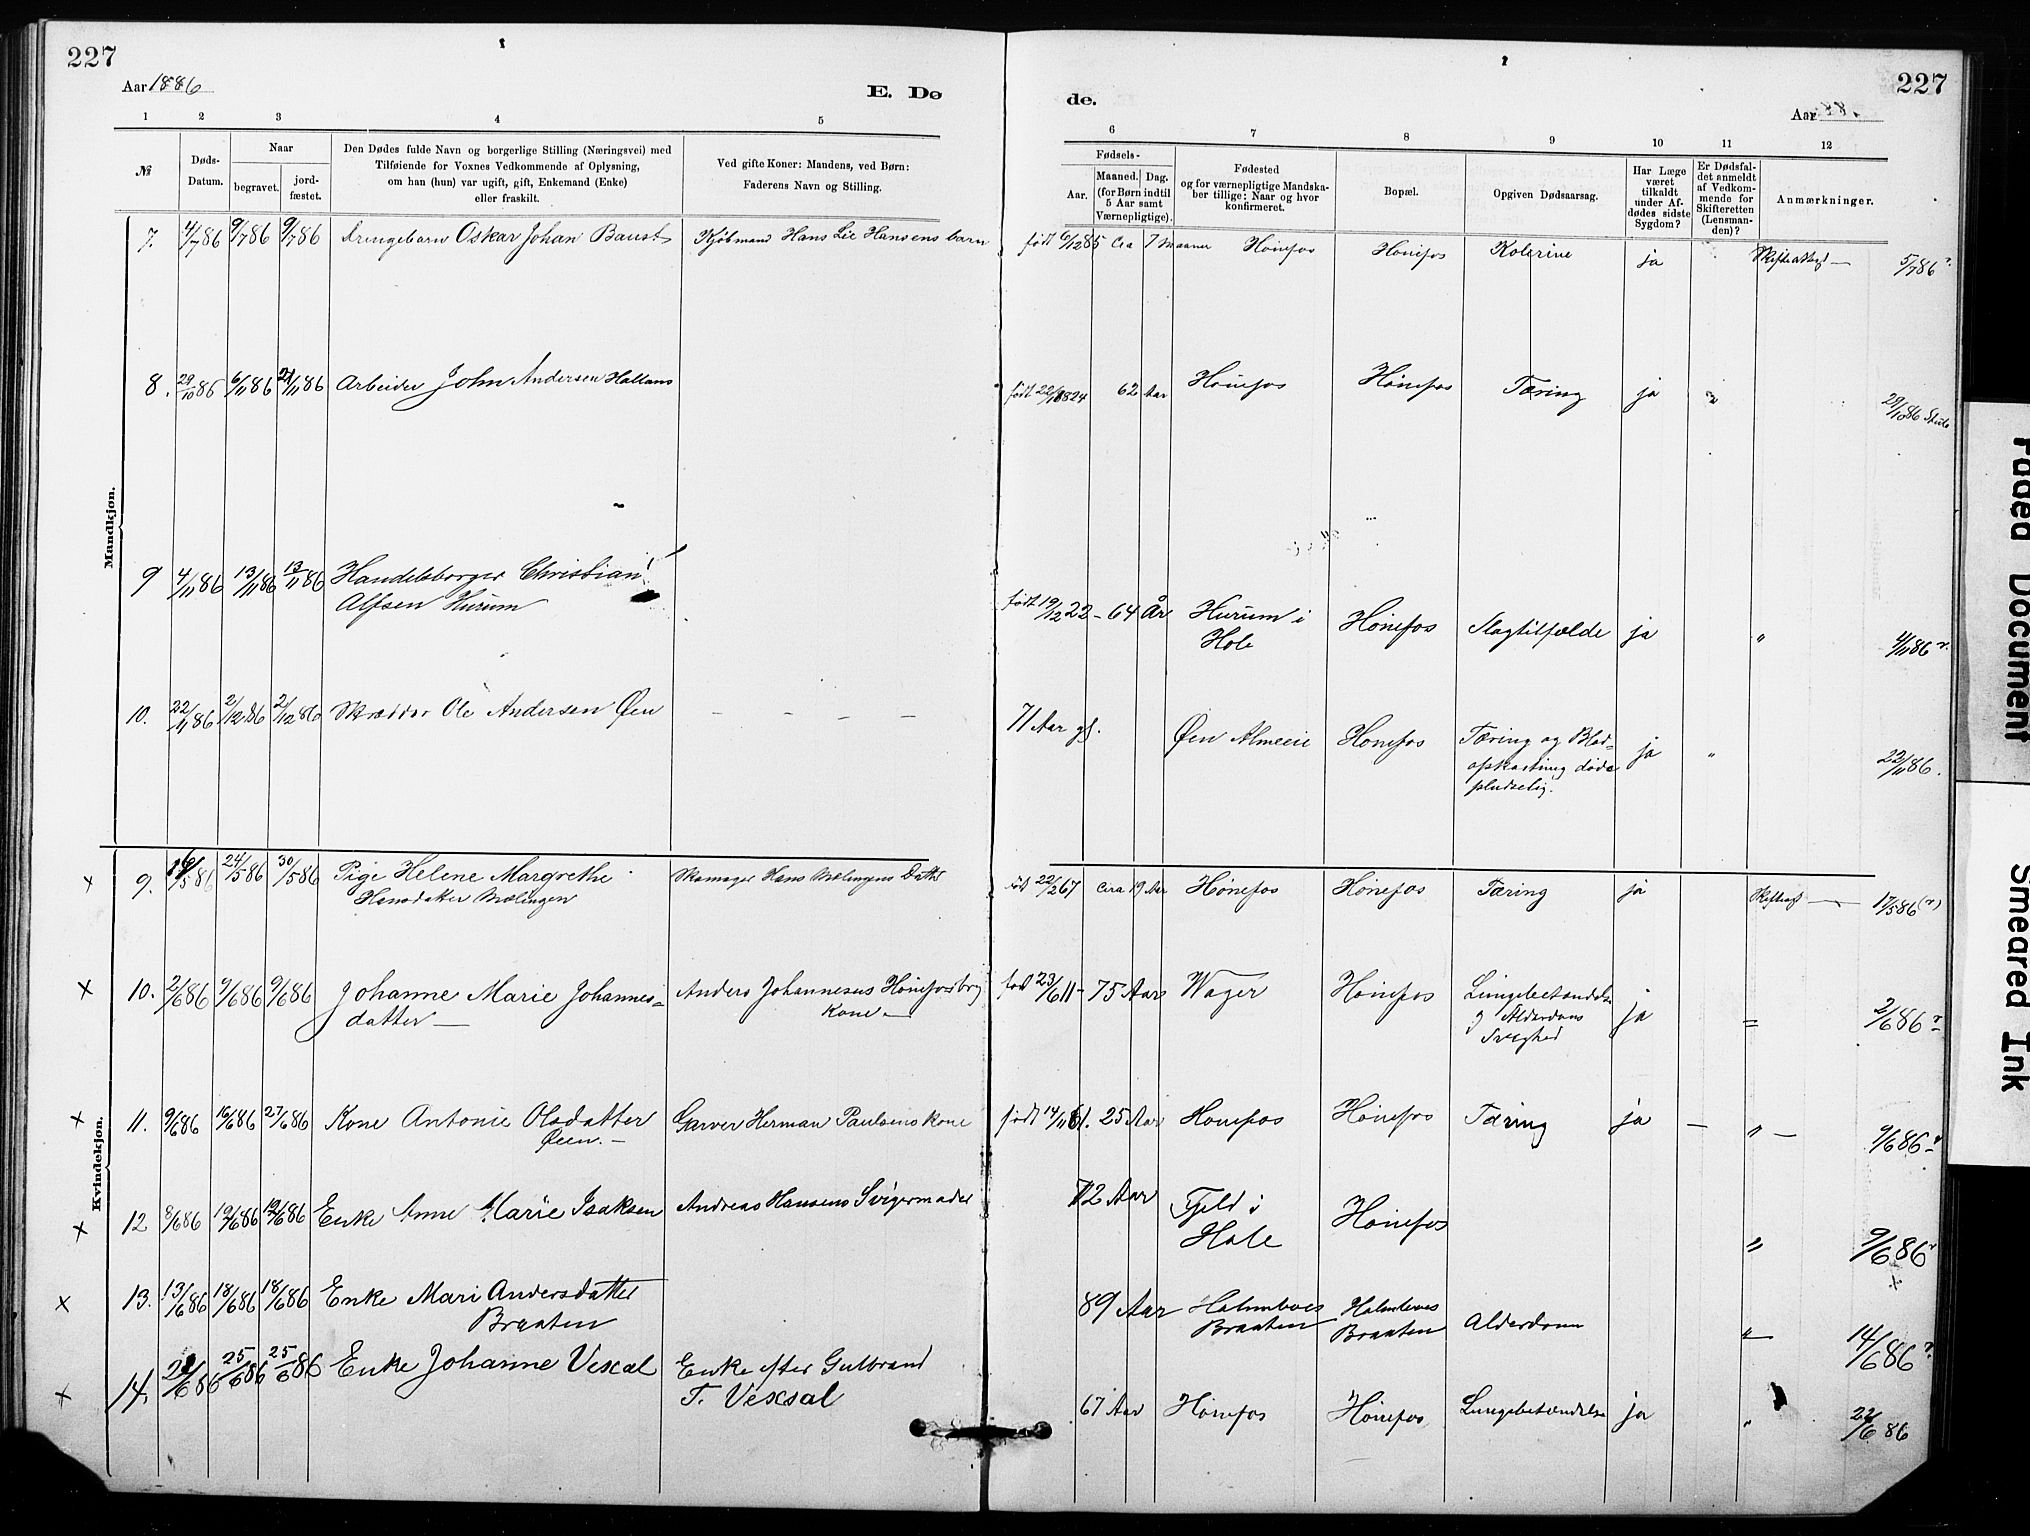 227
Aar 1886
E. Dø
1 2 3 4 5
№
Døds-
Datum.
Naar
begravet.
jord-
fæstet.
Den Dødes fulde Navn og borgerlige Stilling (Næringsvei) med
Tilføiende for Voxnes Vedkommende af Oplysning,
om han (hun) var ugift, gift, Enkemand (Enke)
eller fraskilt.
Ved gifte Koner: Mandens, ved Børn:
Faderens Navn og Stilling.
Mandkjøn.
7. 4/7 86 9/7 86 9/7 86 Drengebarn Oskar Johan Kjøbmand Hans Lie Hansens barn
8. 29/10 86 6/11 86 86 Arbeider John Andersen
9 4/11 86 13/11 86 13/11 86 Handelsborger Christian
Alfsen Hurum
10. 22/11 86 2/12 86 2/12 86 Skrædder Ole Andersen Øen – – – –
Kvindekjøn.
x 9. 16/5 86 24/5 86 30/5 86 Pige Helene Margrethe Skomager Hans Mælingens Datter
Hansdatter Mælingen
x 10. 2/6 86 9/6 86 9/6 86 Johanne Marie Johannes- Anders Johannesens
datter — Kone —
x 11. 9/6 86 16/6 86 27/6 86 Kone Antonie Olsdatter Garver Herman Paulsens kone
Øen. –
x 12 8/6 86 19/6 86 19/6 86 Enke Anne Marie Isaksen Andreas Hansens Svigermoder
x 13. 13/6 86 18/6 86 18/6 86 Enke Mari Andersdatter
Braaten
x 14. 22/6 86 25/6 86 25/6 86 Enke Johanne Vexsal Enke efter Gulbrand
T. Vexsal
227
de.
Aar
6 7 8 9 10 11 12
Fødsels-
Aar.
Maaned. Dag.
(for Børn indtil
5 Aar samt
Værnepligtige).
Fødested
og for værnepligtige Mandska-
ber tillige: Naar og hvor
konfirmeret.
Bopæl.
Opgiven Dødsaarsag.
Har Læge
været
tilkaldt
under Af-
dødes sidste
Sygdom?
Er Dødsfal-
det anmeldt
af Vedkom-
mende for
Skifteretten
(Lensman-
den)?
Anmærkninger.
født 6/12 85 Cra 7 Maaner Hønefos Hønefos Kolerine ja 5/7 86
født 22/11 1824 62 Aar Hønefos Hønefos Tæring ja 29/10 86
født 19/12 22 – 64 År Hurum i Hønefos Slagtilfælde ja " 4/11 86
Hole
71 Aar gl. Øen Almeeie Hønefos Tæring og Blod- ja " 22/11 86.
opkastning døde
pludselig.
født 22/2 67 Cera 19 Aar Hønefos Hønefos Tæring ja 17/5 86
født 23/6 11 – 75 Aar Wager Hønefos Lungebetændelse
og Alderdoms ja = 2/6 86
Svaghed
født 14/11 61. 25 Aar Hønefos Hønefos Tæring ja — " — 9/6 86
72 Aar Fjeld i Hønefos
Hole " 9/6 86
89 Aar Halmboes Halmboes
Braaten Braaten Alderdom " 14/6 86
67 Aar Hønefos Hønefos. Lungebetændelse ja " 22/6 86
Faded Document
Smeared Ink